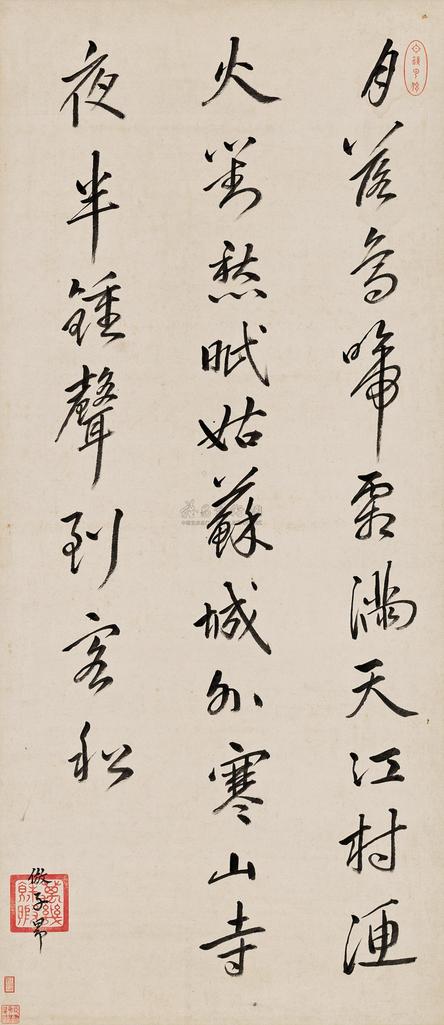 月落烏啼霜滿天江村漁
火對愁眠姑蘇城外寒山寺
夜半鍾聲到客舩
倣子昂
萬幾餘暇